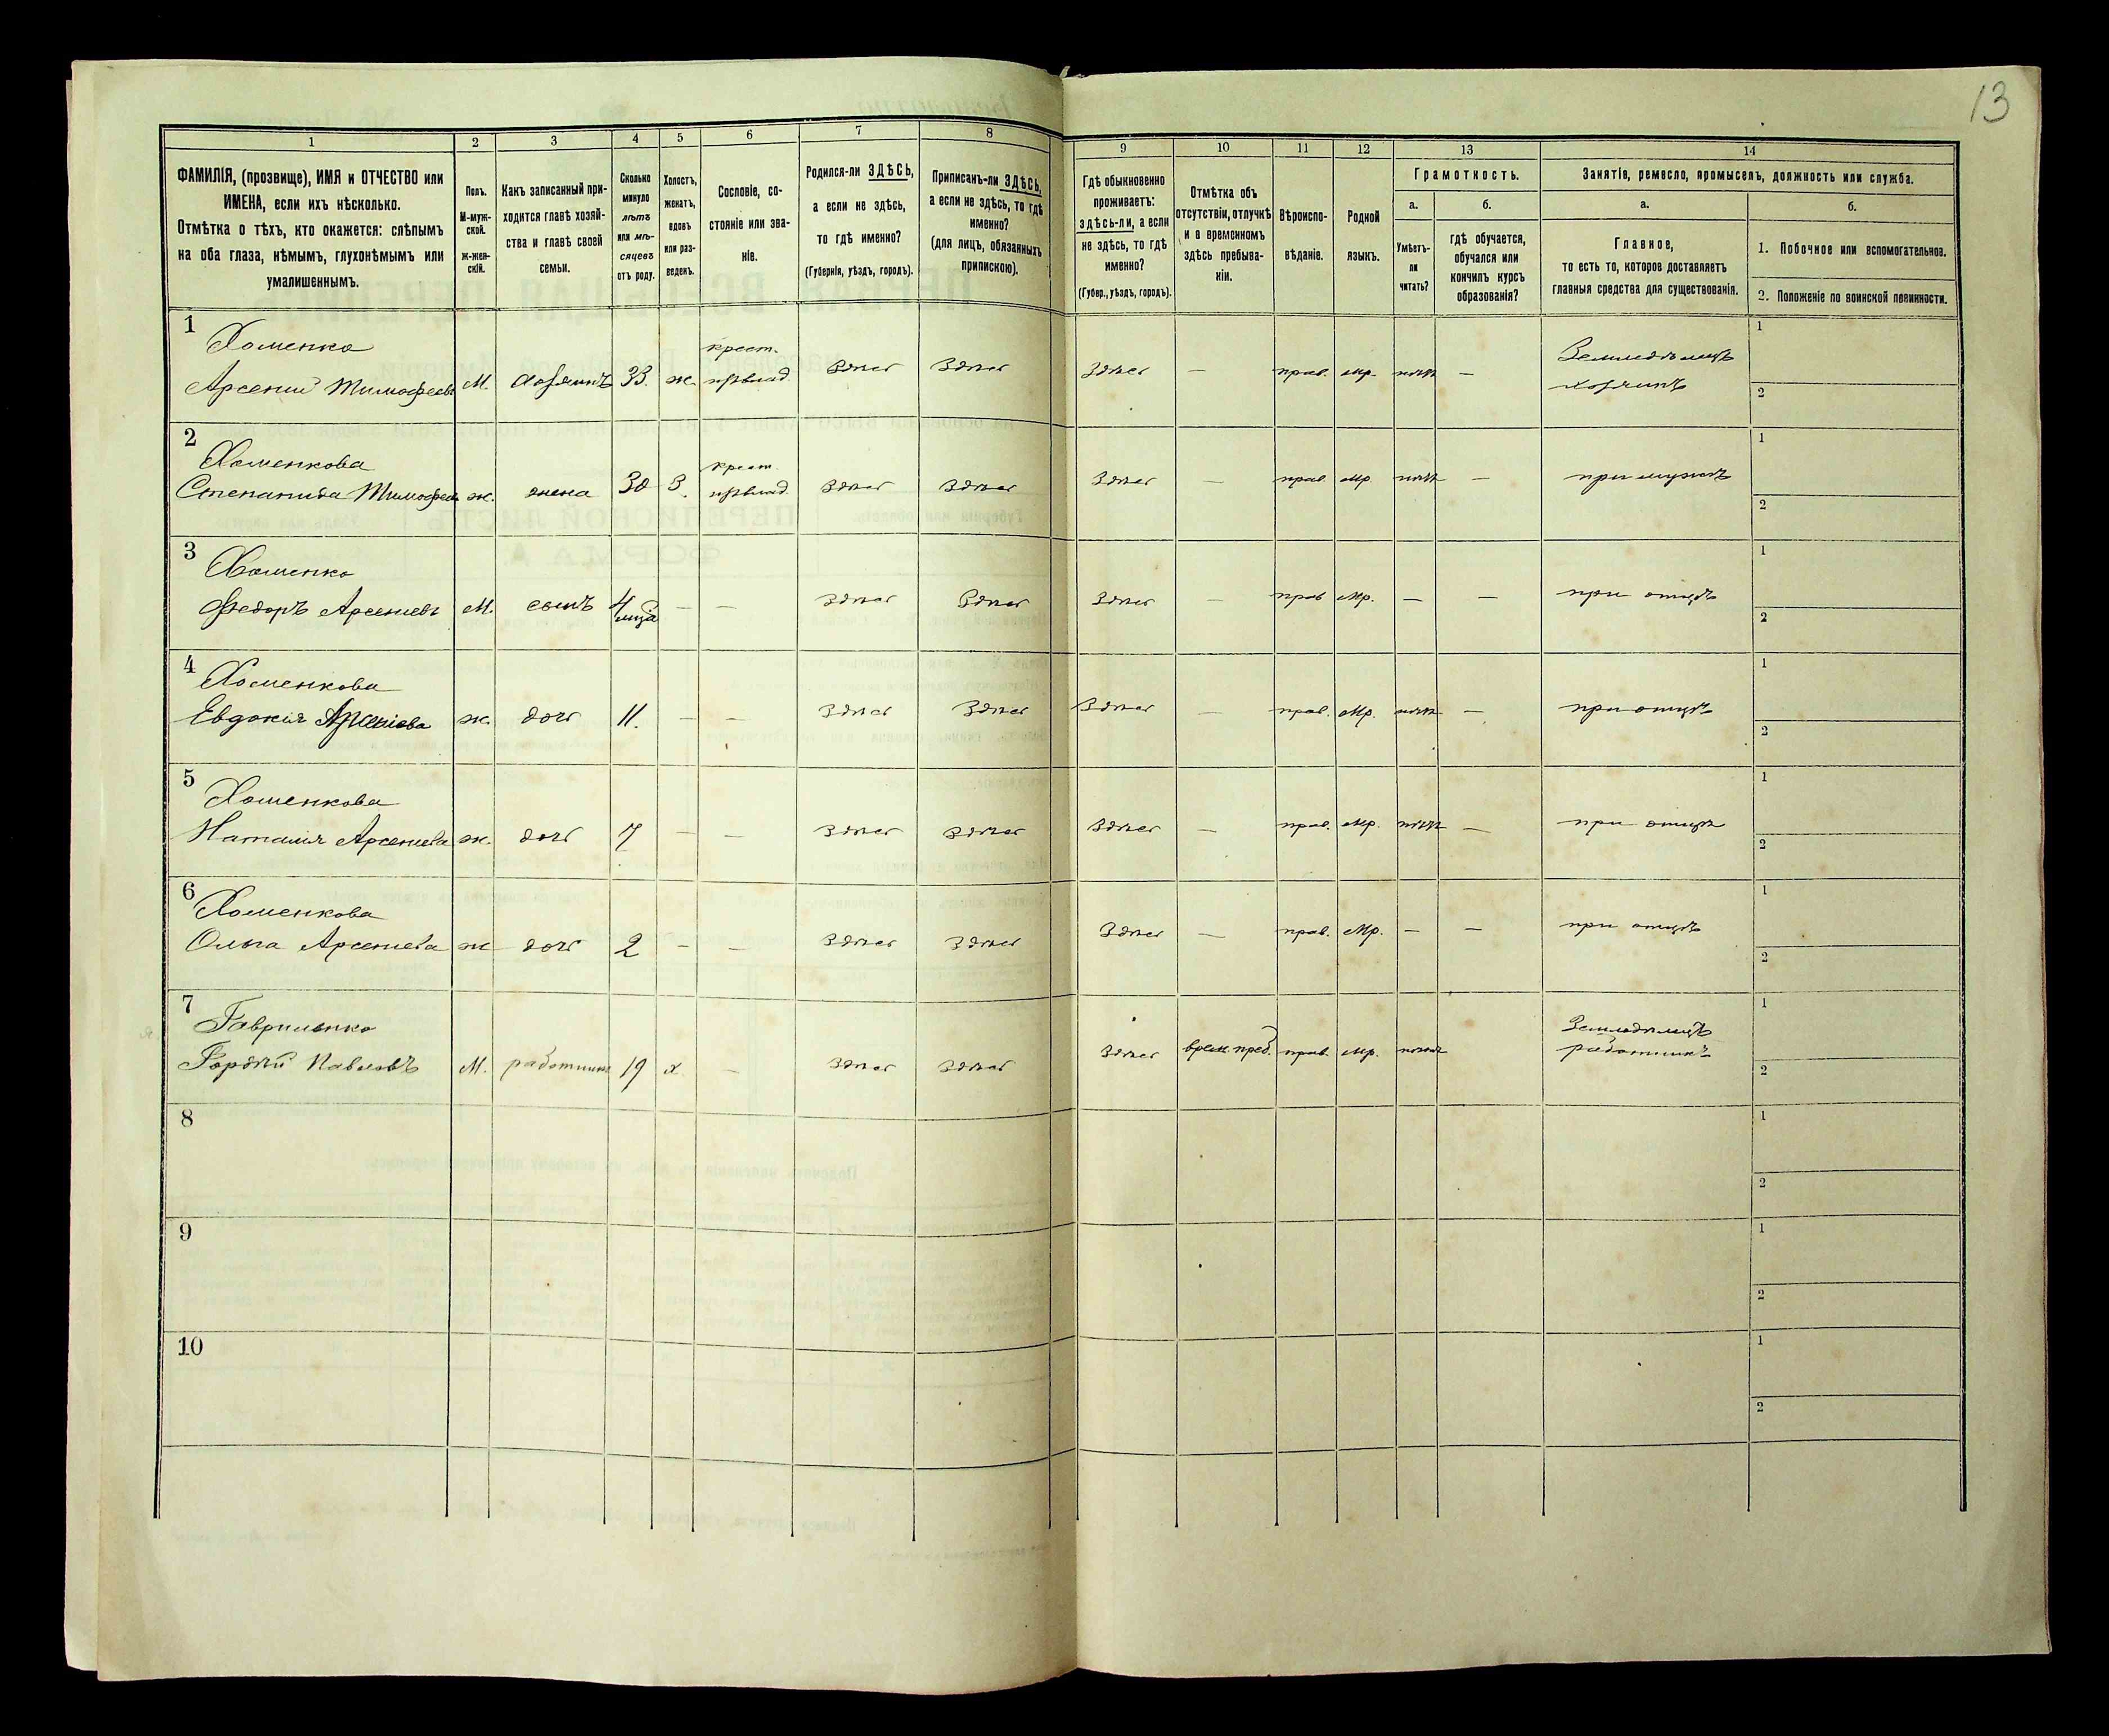 13
1 2 3 4 5 6 7 8 9 10 11 12 13 14
ФАМИЛІЯ, (прозвище), ИМЯ и ОТЧЕСТВО или
ИМЕНА, если ихъ нѣсколько.
Отмѣтка о тѣхъ, кто окажется: слѣпымъ
на оба глаза, нѣмымъ, глухонѣмымъ или
умалишеннымъ.
Полъ.
М-муж-
ской.
Ж-жен-
скій.
Какъ записанный при-
ходится главѣ хозяй-
ства и главѣ своей
семьи.
Сколько
минуло
лѣтъ
или мѣ-
сяцевъ
отъ роду.
Холостъ,
женатъ,
вдовъ
или раз-
веденъ.
Сословіе, со-
стояніе или зва-
ніе.
Родился-ли ЗДѢСЬ,
а если не здѣсь,
то гдѣ именно?
(Губернія, уѣздъ, городъ).
Приписанъ-ли ЗДѢСЬ,
а если не здѣсь, то гдѣ
именно?
(для лицъ, обязанныхъ
припискою).
Гдѣ обыкновенно
проживаетъ:
здѣсь-ли, а если
не здѣсь, то гдѣ
именно?
(Губер., уѣздъ, городъ).
Отмѣтка объ
отсутствіи, отлучкѣ
и о временномъ
здѣсь пребыва-
ніи.
Вѣроиспо-
вѣданіе.
Родной
языкъ.
Грамотность.
а.
Умѣетъ-
ли
читать?
б.
гдѣ обучается,
обучался или
кончилъ курсъ
образованія?
Занятіе, ремесло, промыселъ, должность или служба.
а.
Главное,
то есть то, которое доставляетъ
главныя средства для существованія.
б.
1. Побочное или вспомогательное.
2. Положеніе по воинской повинности.
1
Хоменко крест. Земледѣлецъ 1
Арсеній Тимофеевъ М. хозяинъ 33. ж. Здѣсь Здѣсь Здѣсь — прав. мр. нѣтъ — хозяинъ 2
2
Хоменкова крест. 1
Степанида Тимофеев ж. жена 30 З. Здѣсь Здѣсь Здѣсь — прав. мр. нѣтъ — при мужѣ 2
3
Хоменко 1
Федоръ Арсеніевъ М. сынъ 4 — — Здѣсь Здѣсь Здѣсь — прав мр. — — при отцѣ 2
4
Хоменкова 1
Евдокія Арсеніева ж. дочь 11. — — Здѣсь Здѣсь Здѣсь — прав. мр. нѣтъ — при отцѣ 2
5
Хоменкова 1
Наталія Арсеніева ж. дочь 7 — — Здѣсь Здѣсь Здѣсь — прав. мр. нѣтъ — при отцѣ 2
6
Хоменкова 1
Ольга Арсеніева ж дочь 2 — — Здѣсь Здѣсь Здѣсь — прав. мр. — — при отцѣ 2
7
Гаврильнко Земледѣлецъ 1
Гордѣй Павловъ М. работникъ 19 х. — Здѣсь Здѣсь Здѣсь врем. преб. прав. мр. работникъ 2
8 1
2
9 1
2
10 1
2